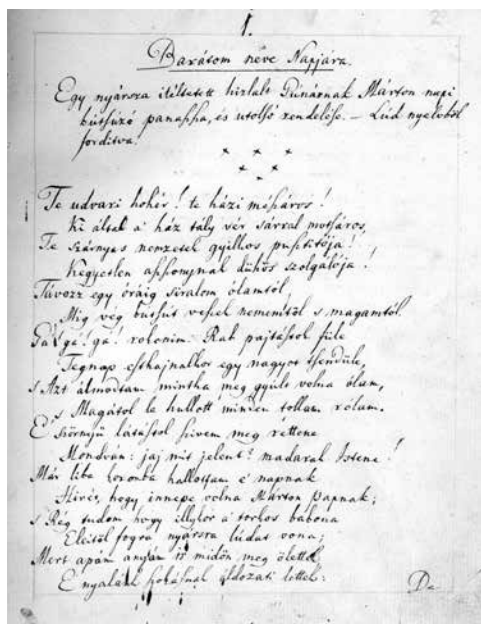 1.
2
Barátom neve Napjára.
Egy nyársra itéltetett hizlalt Gúnárnak Márton napi
bútsúzó panassza, és utolsó rendelése. – Lúd nyelvből
fordítva.
× × ×
× ×
Te udvari hohér! te házi mészáros!
Ki által a' ház tály vér sárral motsáros,
Te szárnyas nemzetek gyilkos pusztitója!
Kegyetlen asszonynak dühös szolgálója!
Távozz egy óráig siralom ólamtól,
Míg vég butsút veszek nememtől s magamtól.
Gá! gá! gá! rokonim. Rab pajtástok füle
Tegnap esthajnalkor egy nagyot tsendüle,
s Azt álmodtam mintha meg gyúlt volna ólam,
's Magától le hullott minden tollam rólam.
E' szörnyű látástól szivem meg rettene
Mondván: jaj mit jelent? madarak Istene!
Már liba koromba hallottam e' napnak
Hirét, hogy innepe volna Márton papnak;
s Rég tudom hogy illykor a' torkos babona
Eleitől fogva nyársra ludat vona;
Mert apám anyám is midőn meg ölettek,
E' nyalánk szokásnak áldozati lettek:
De